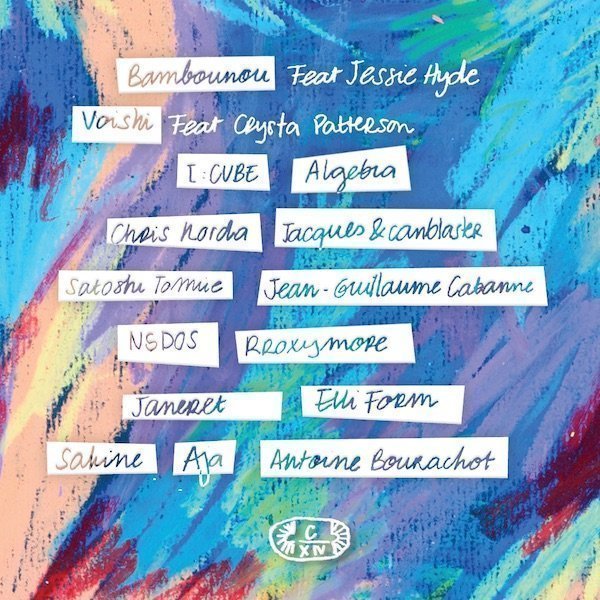 Bambounou Feat Jessie Hyde
Voiski Feat Crysta Patterson
I:CUBE Algebra
Chris Korda Jacques & canblaster
Satoshi Tomiie Jean-Guillaume Cabanne
NSDOS RROXYMORE
Janeret Elli Form
Sahine Aja Antoine Bourachot
C
XIV